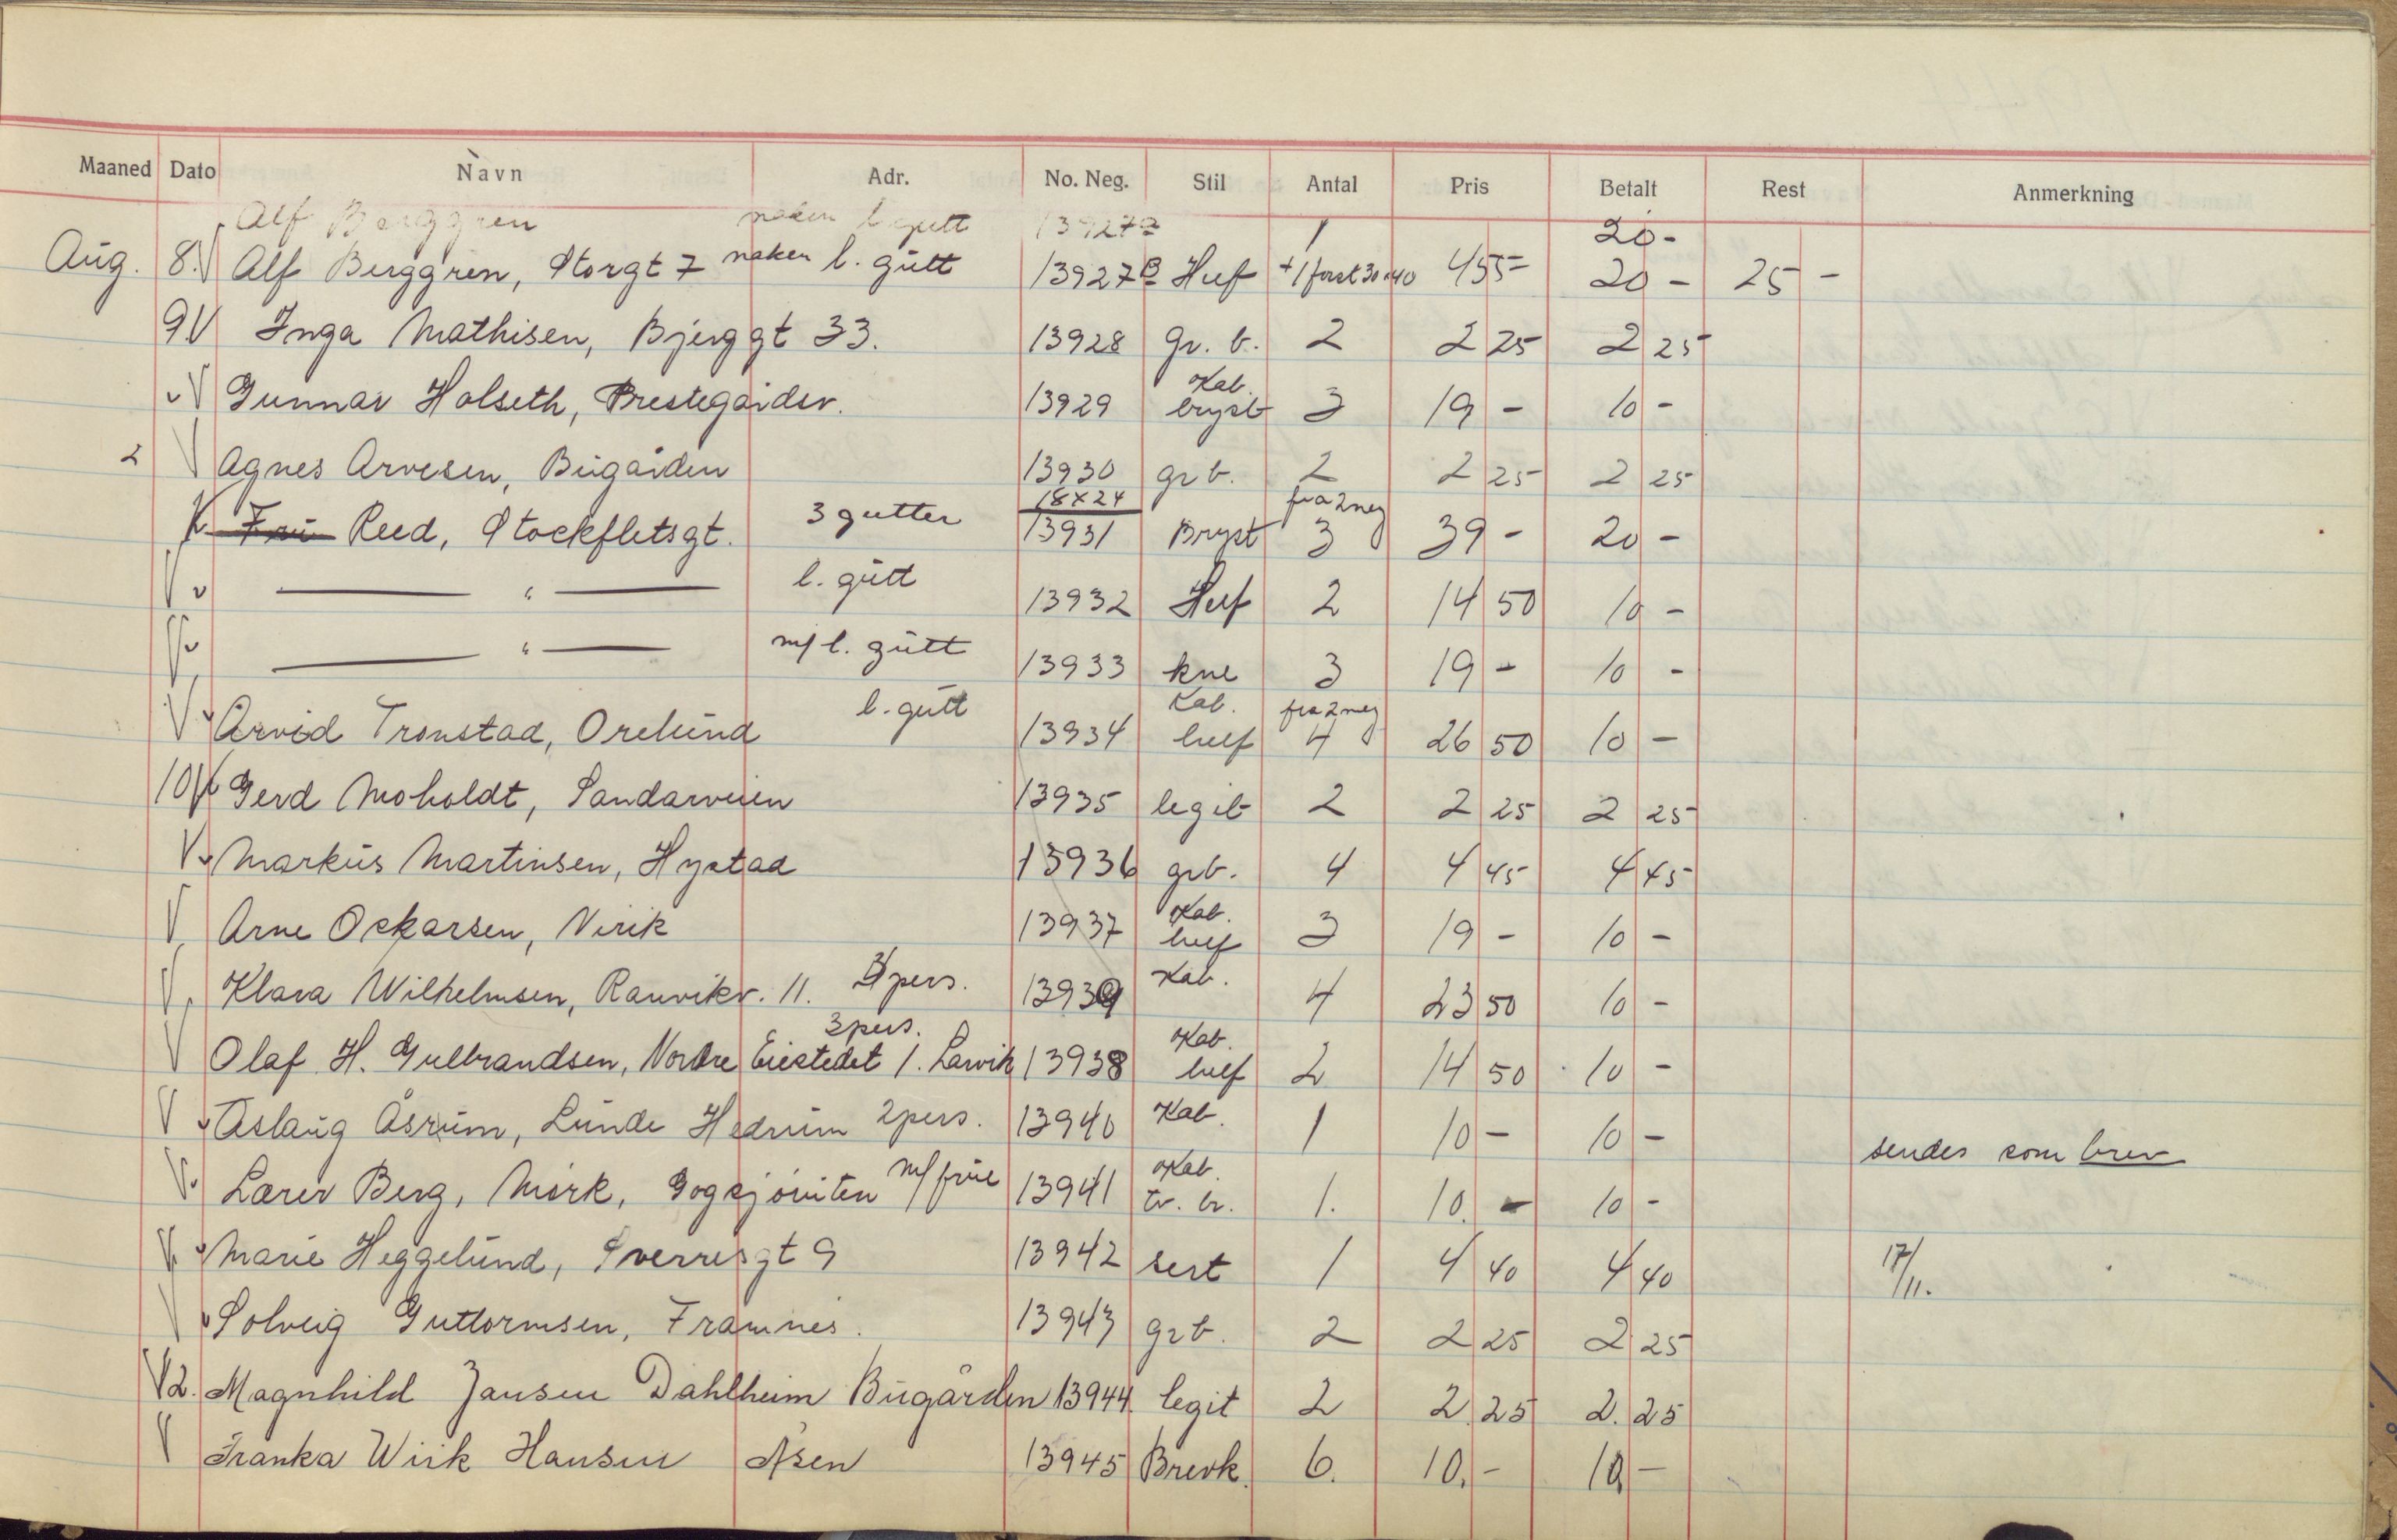 Maaned Dato Navn Adr. No. Neg. Stil Antal Pris Betalt Rest Anmerkning
Alf Berggren naken l. gutt 13927a 1 20-
Aug. 8. V Alf Berggren, Storgt 7 naken l. gutt 13927B Huf +1 forst 30-40 45 5- 20 - 25 -
9. V Inga Mathisen, Bjerggt 33. 13928 gr. b. 2 2 25 2 25
V Gunnar Holseth, Prestegaidsv. 13929 Kab. bryst 3 19 - 10 -
2 V Agnes Arvesen, Bugaiden 13930 gr b. 2 2 25 2 25
V Fru Reed, Stockfletsgt. 3 gutter 18x24 13931 Bryst fra 2 neg 3 39 - 20 -
V — " — l. gutt 13932 Huf 2 14 50 10 -
V — " — m/ l. gutt 13933 kne 3 19 - 10 -
V Arvid Tronstad, Orelund l. gutt 13934 Kab. huf fra 2 neg 4 26 50 10 -
10 V Gerd Moholdt, Sandarveien 13935 legit 2 2 25 2 25
V Markus Martinsen, Hystad 13936 grb. 4 4 45 4 45
V Arne Oskarsen, Virik 13937 Kab. huf 3 19 - 10 -
V Klara Wilhelmsen, Ranvikv. 11. pers. 13939 Kab. 4 23 50 10 -
V Olaf H. Gulbrandsen, Nordre Eiestedet 3 pers. / . Larvik 13938 Kab. huf 2 14 50 10 -
V Aslaug Åsrum, Lunde Hedrum 2 pers. 13940 Kab. 1 10 - 10 -
V Lærer Berg, Mørk, Gogsjøruten m/ frue 13941 Kab. tv. br. 1. 10. - 10 - sendes som brev
V Marie Heggelund, Sverresgt 9 13942 sert 1 4 40 4 40 17/11.
V Solveig Guttormsen, Framnes. 13943 grb. 2 2 25 2 25
V 12. Magnhild Jansen Dahlheim Bugården 13944 legit 2 2. 25 2. 25
V Franka Wiik Hansen Åsen 13945 Brevk. 6. 10. - 10 -